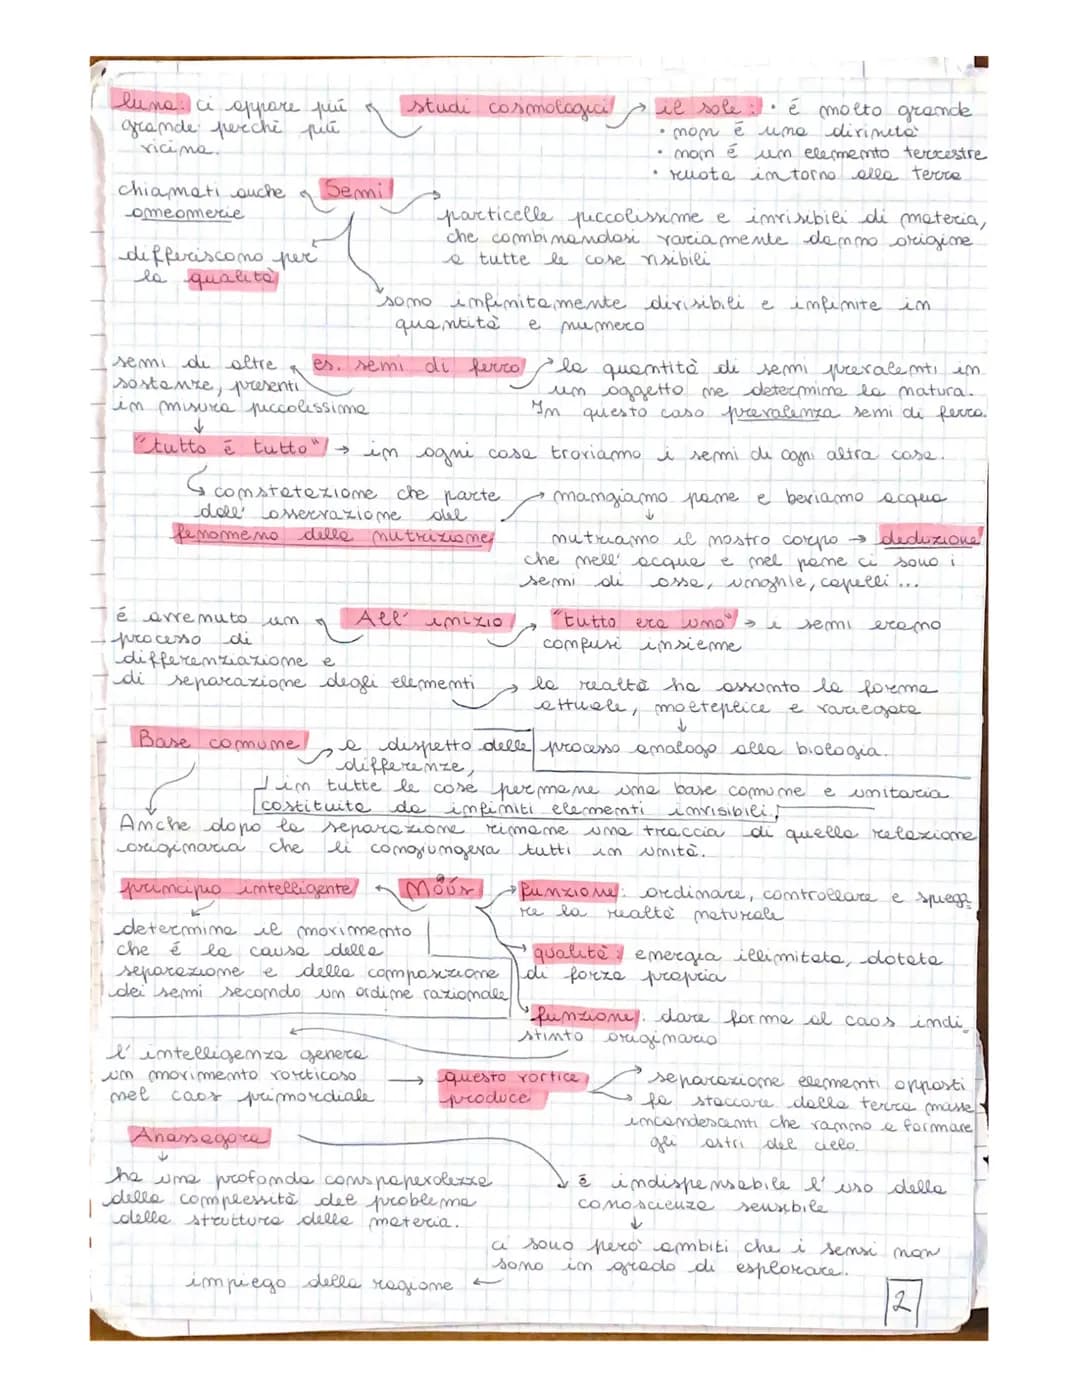 luna: ci appare più
grande perchè più
vicina.
studi cosmologici
il sole: • é molto grande
• non é una divinità
• non é un elemento terrestre
• ruota intorno alla terra
chiamati anche
omeomerie
Semi
particelle piccolissime e invisibili di materia,
che combinandosi variamente danno origine
a tutte le cose visibili
differiscono per
la qualità
sono infinitamente divisibili e infinite in
quantità e numero
semi di altre
sostanze, presenti
in misura piccolissima
es. semi di ferro
la quantità di semi prevalenti in
un oggetto ne determina la natura.
In questo caso prevalenza semi di ferro.
"tutto é tutto" → in ogni cosa troviamo i semi di ogni altra cosa.
constatazione che parte
dall' osservazione del
fenomeno della nutrizione
mangiamo pane e beviamo acqua
nutriamo il nostro corpo → deduzione
che nell' acqua e nel pane ci sono i
semi di ossa, unghie, capelli ...
é avvenuto un
processo di
differenziazione e
di separazione degli elementi
All' inizio
"tutto era uno" → i semi erano
confusi insieme
la realtà ha assunto la forma
attuale, molteplice e variegata
Base comune
a dispetto delle
differenze,
processo analogo alla biologia.
in tutte le cose permane una base comune e unitaria
costituita da infiniti elementi invisibili.
Anche dopo la separazione rimane una traccia di quella relazione
originaria che li congiungeva tutti in unità.
principio intelligente
Noûs
funzione: ordinare, controllare e spiega
re la realtà naturale
determina il movimento
che é la causa della
separazione e della composizione
dei semi secondo un ordine razionale
qualità: energia illimitata, dotata
di forza propria
funzione: dare forma al caos indi_
stinto originario
l' intelligenza genera
un movimento vorticoso
nel caos primordiale
→ questo vortice
produce
separazione elementi opposti
fa staccare dalla terra masse
incandescenti che vanno a formare
gli astri del cielo.
Anassagora
ha una profonda consapevolezza
della complessità del problema
della struttura della materia.
é indispensabile l' uso della
conoscienza sensibile
ci sono però ambiti che i sensi non
sono in grado di esplorare.
impiego della ragione ←
2